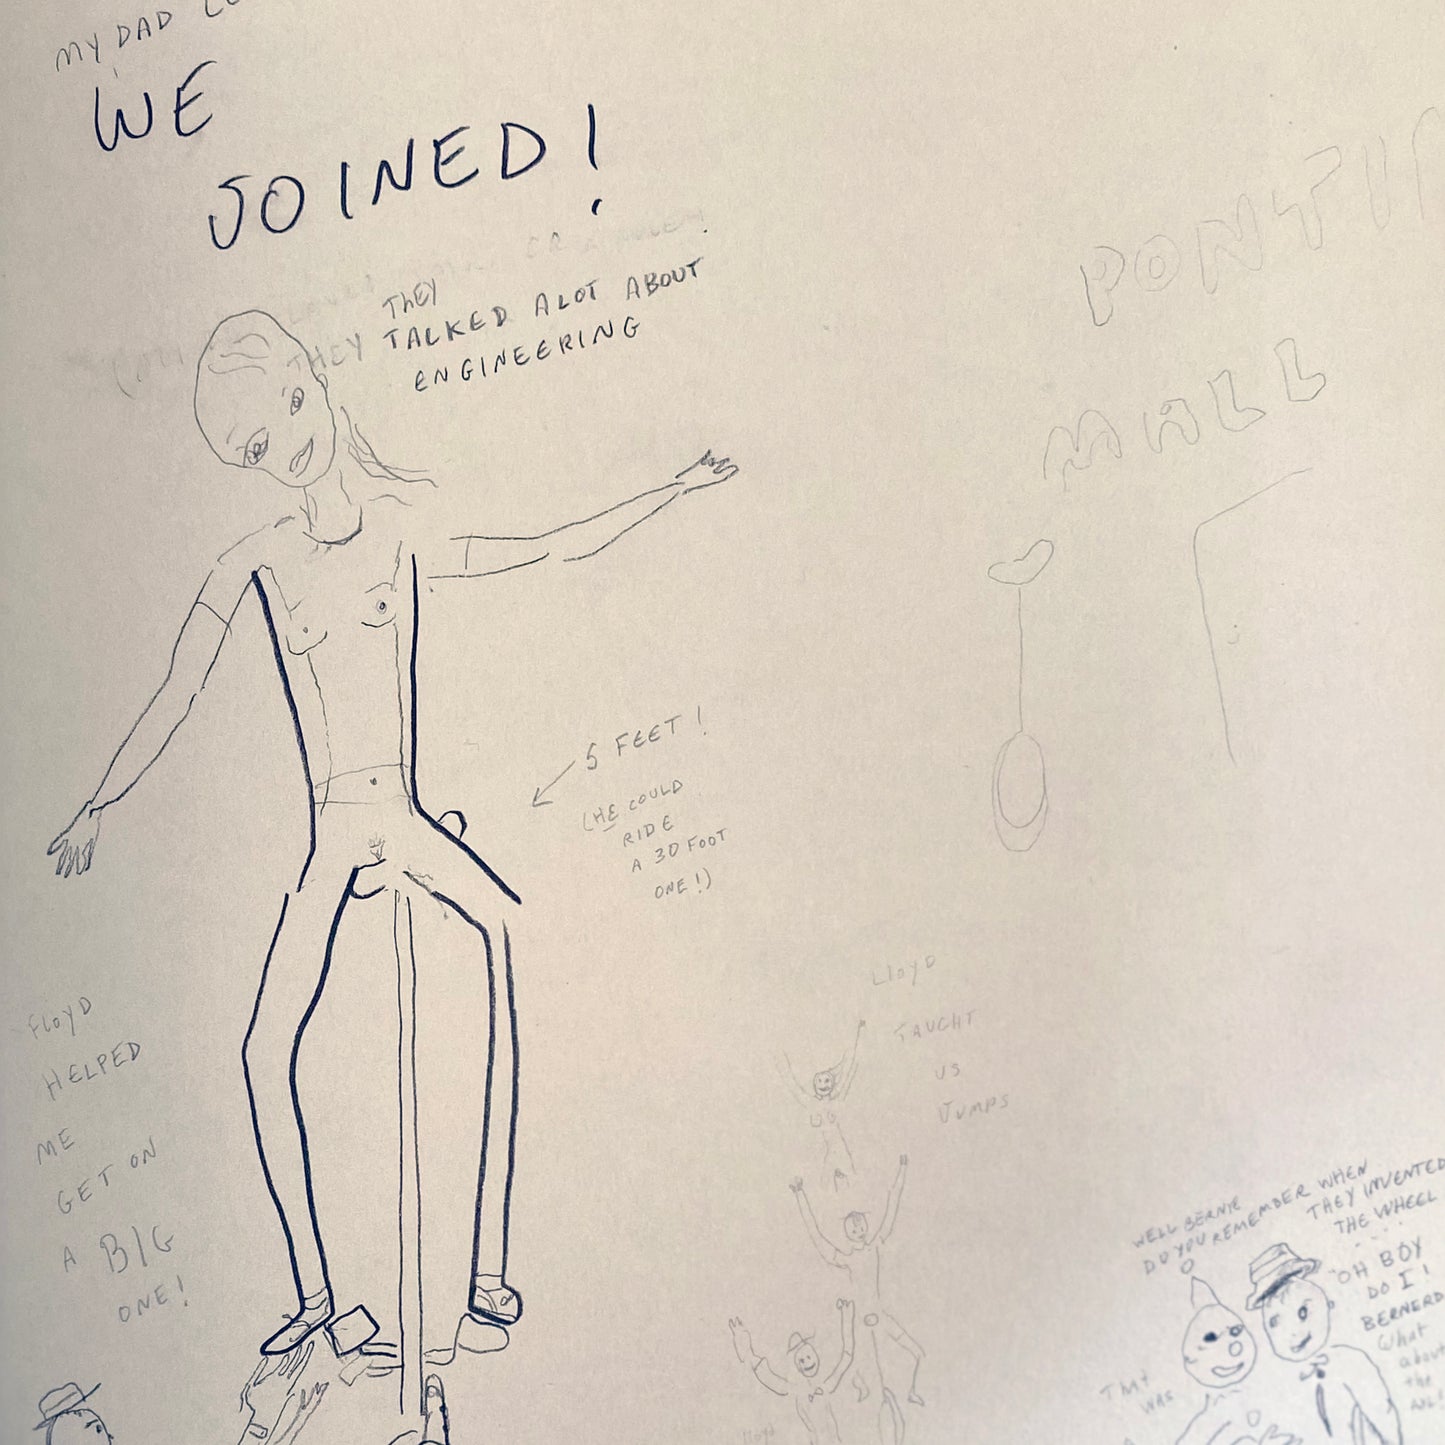 MY DAD
WE
JOINED!
THEY
THEY TALKED ALOT ABOUT
ENGINEERING
PONTI
MALL
5 FEET!
(HE COULD
RIDE
A 30 FOOT
ONE!)
FLOYD
HELPED
ME
GET ON
A BIG
ONE!
LLOYD
TAUGHT
US
JUMPS
WELL BERNIE
DO YOU REMEMBER WHEN
THEY INVENTED
THE WHEEL
OH BOY
DO I!
BERNERD
What
about
the
THAT
WAS
lloyd